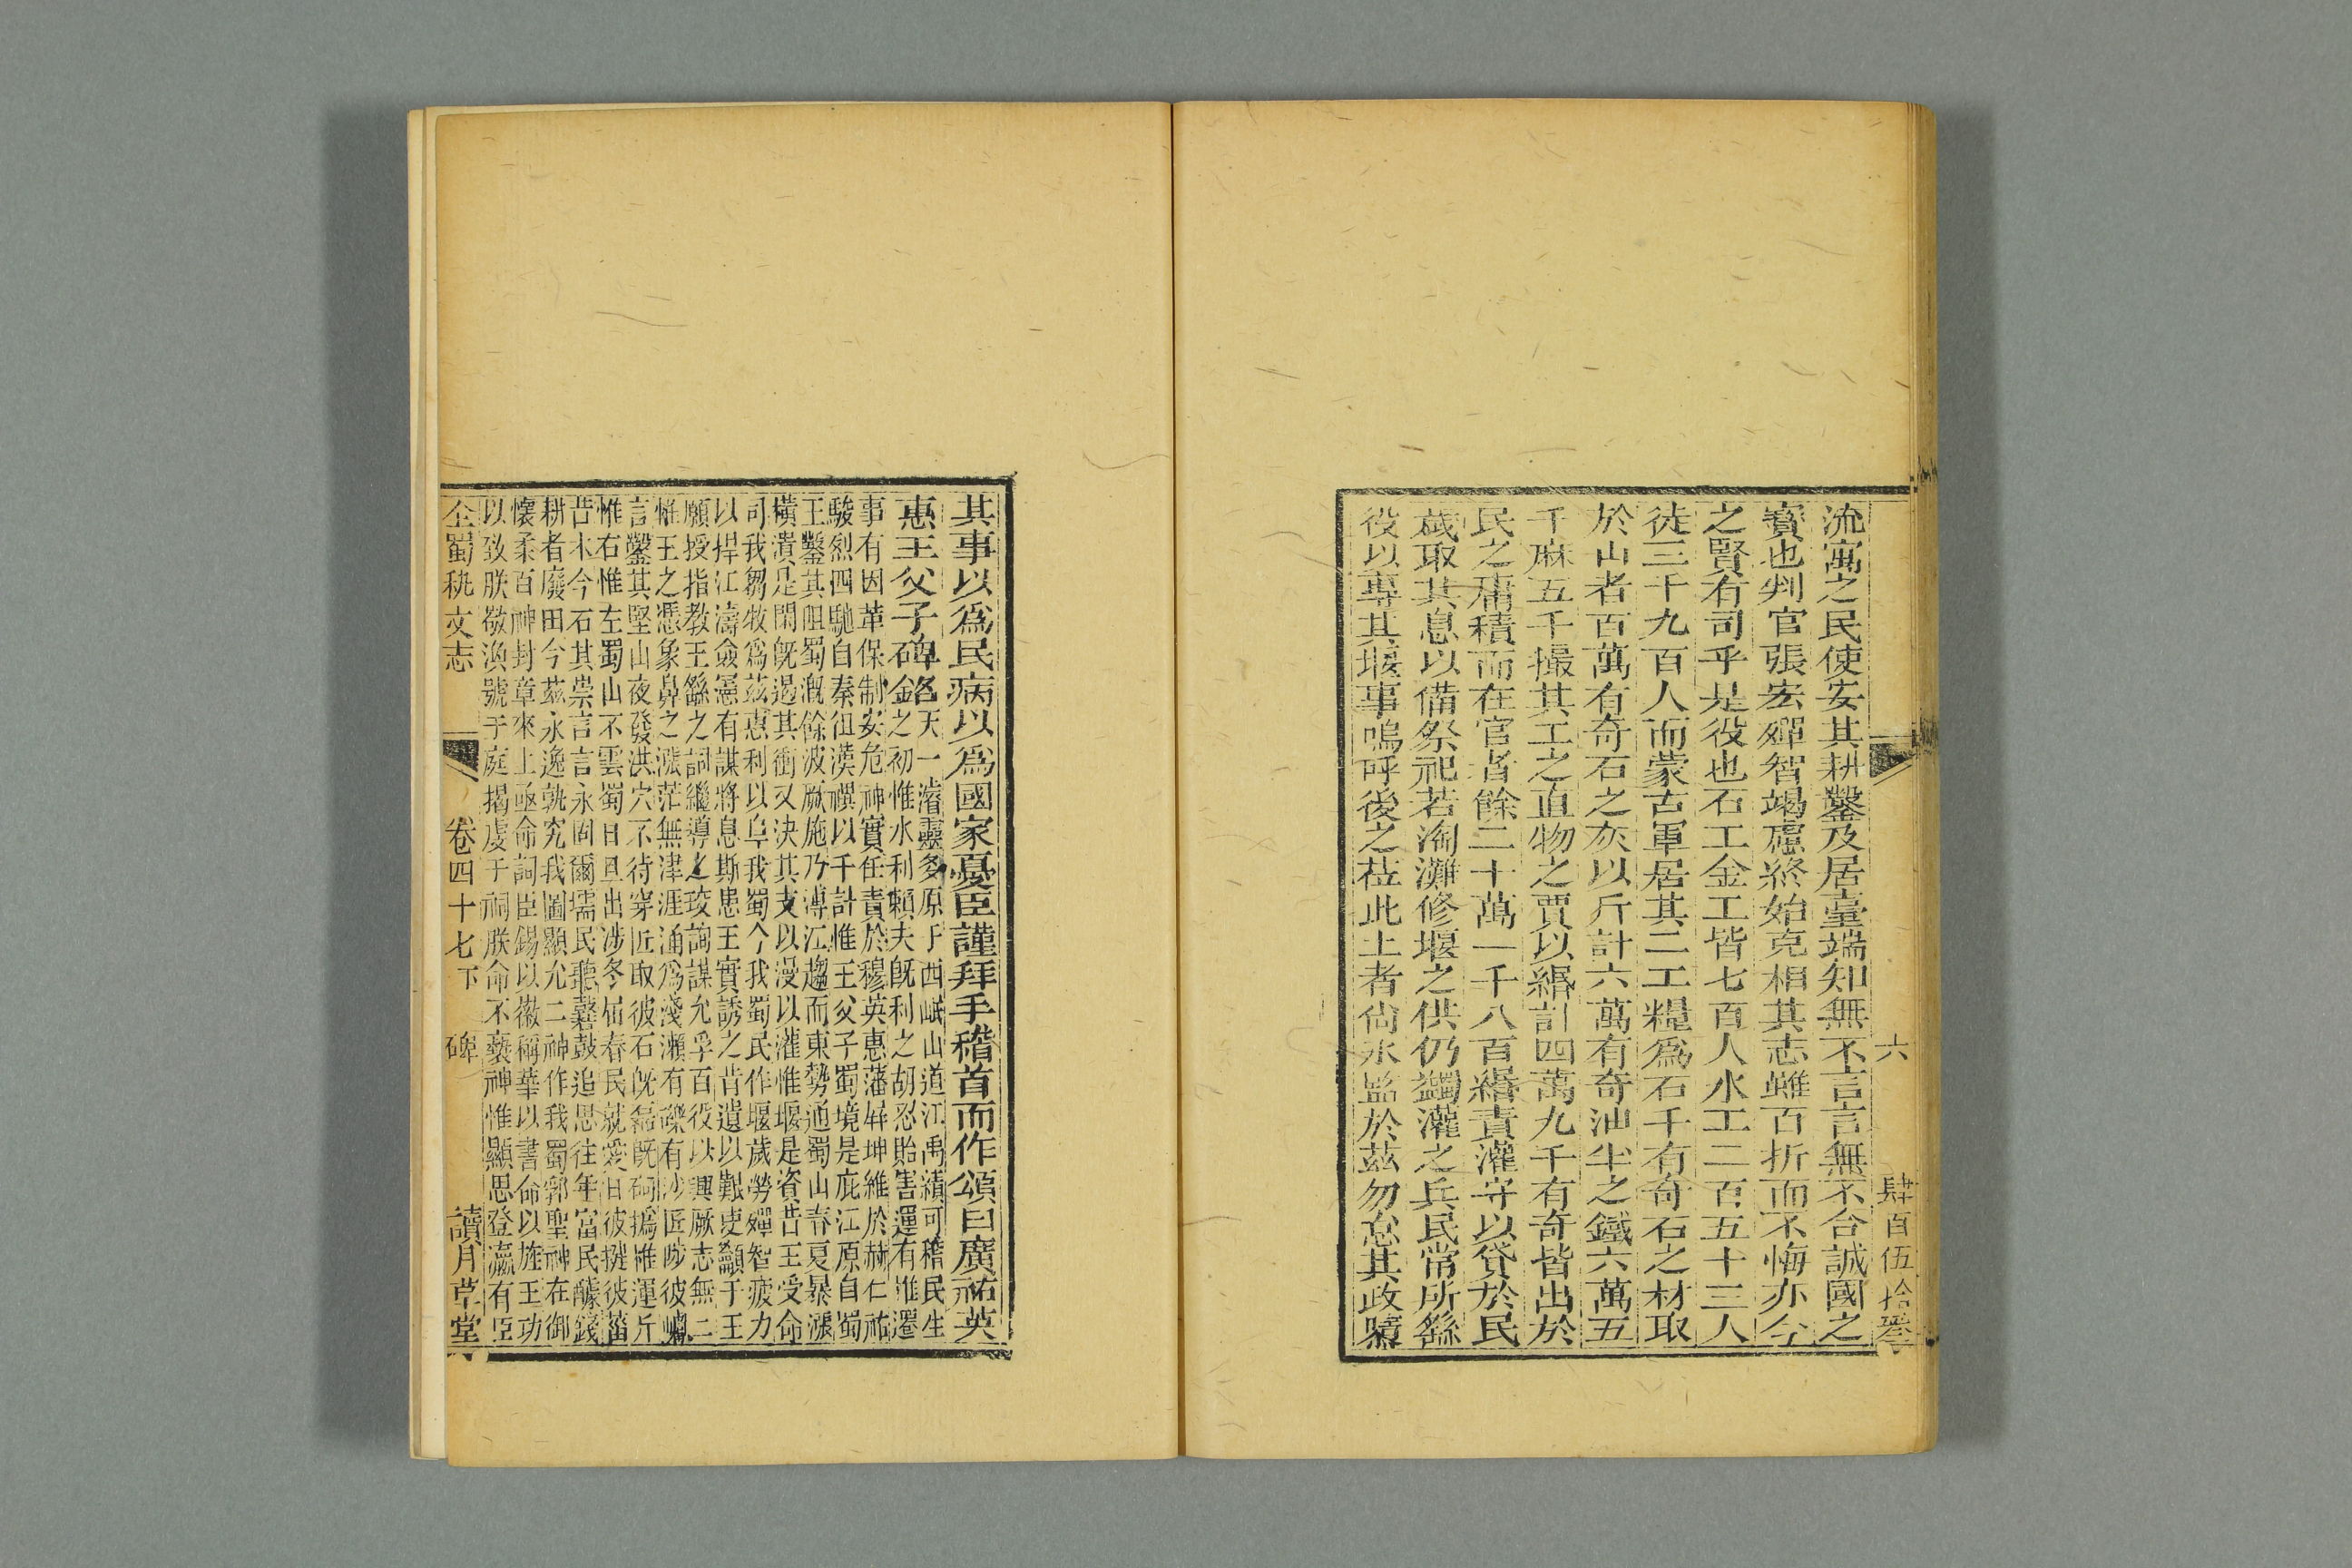 六　肆百伍拾叁
流寓之民使安其耕鑿及居臺端知無不言言無不合誠國之
寳也判官張宏殫智竭慮終始克相其志雖百折而不悔亦今
之賢有司乎是役也石工金工皆七百人水工二百五十三人
徒三千九百人而蒙古軍居其二工糧爲石千有奇石之材取
於山者百萬有奇石之灰以斤計六萬有奇油半之鐵六萬五
千麻五千撮其工之直物之賈以緡計四萬九千有奇皆出於
民之庸積而在官者餘二十萬一千八百緡責灌守以貸於民
歲取其息以備祭祀若淘灘修堰之供仍蠲灌之兵民常所繇
役以專其堰事嗚呼後之莅此土者尙永監於茲勿怠其政隳
其事以爲民病以爲國家憂臣謹拜手稽首而作頌曰廣祐英
惠王父子碑銘
天一濬靈多原于西岷山道江禹績可稽民生
之初惟水利賴夫旣利之胡忍貽害運有推遷
事有因革保制安危神實任責於穆英惠藩屛坤維於赫仁祐
駿烈四馳自秦徂漢禩以千計惟王父子蜀境是庇江原自蜀
王鑿其阻蜀溉餘波厥施乃溥江趨而東勢通蜀山春夏暴漲
橫潰是閑旣遏其衝又決其支以漫以灌惟堰是資昔王受命
司我芻牧爲茲惠利以阜我蜀今我蜀民作堰歲勞殫智疲力
以捍江濤僉憲有謀將息斯患王實誘之昔遺以艱吏籲于王
願授指教王繇之詞繼導之珓詢謀允孚百役以興厥志無二
惟王之憑象鼻之漲茫無津涯涌爲淺瀨有礫有沙匠咴彼
言鑿其堅山夜發洪穴不待穿匠取彼石旣磊旣砢搗惟運斤
惟右惟左蜀山不雲蜀日旦出涉冬屆春民就愛日彼揵彼菑
昔木今石其崇言言永固爾壖民聽鼛鼓追思往年富民釀錢
耕者廢田今茲永逸孰究我圖顯允二神作我蜀郛聖神在御
懷柔百神封章來上亟命詞臣錫以徽稱華以書命以旌王功
以致朕敬渙號于庭揭虔于祠朕命不䙝神惟顯思登瀛有臣
全蜀秇文志　卷四十七下　碑　讀月草堂